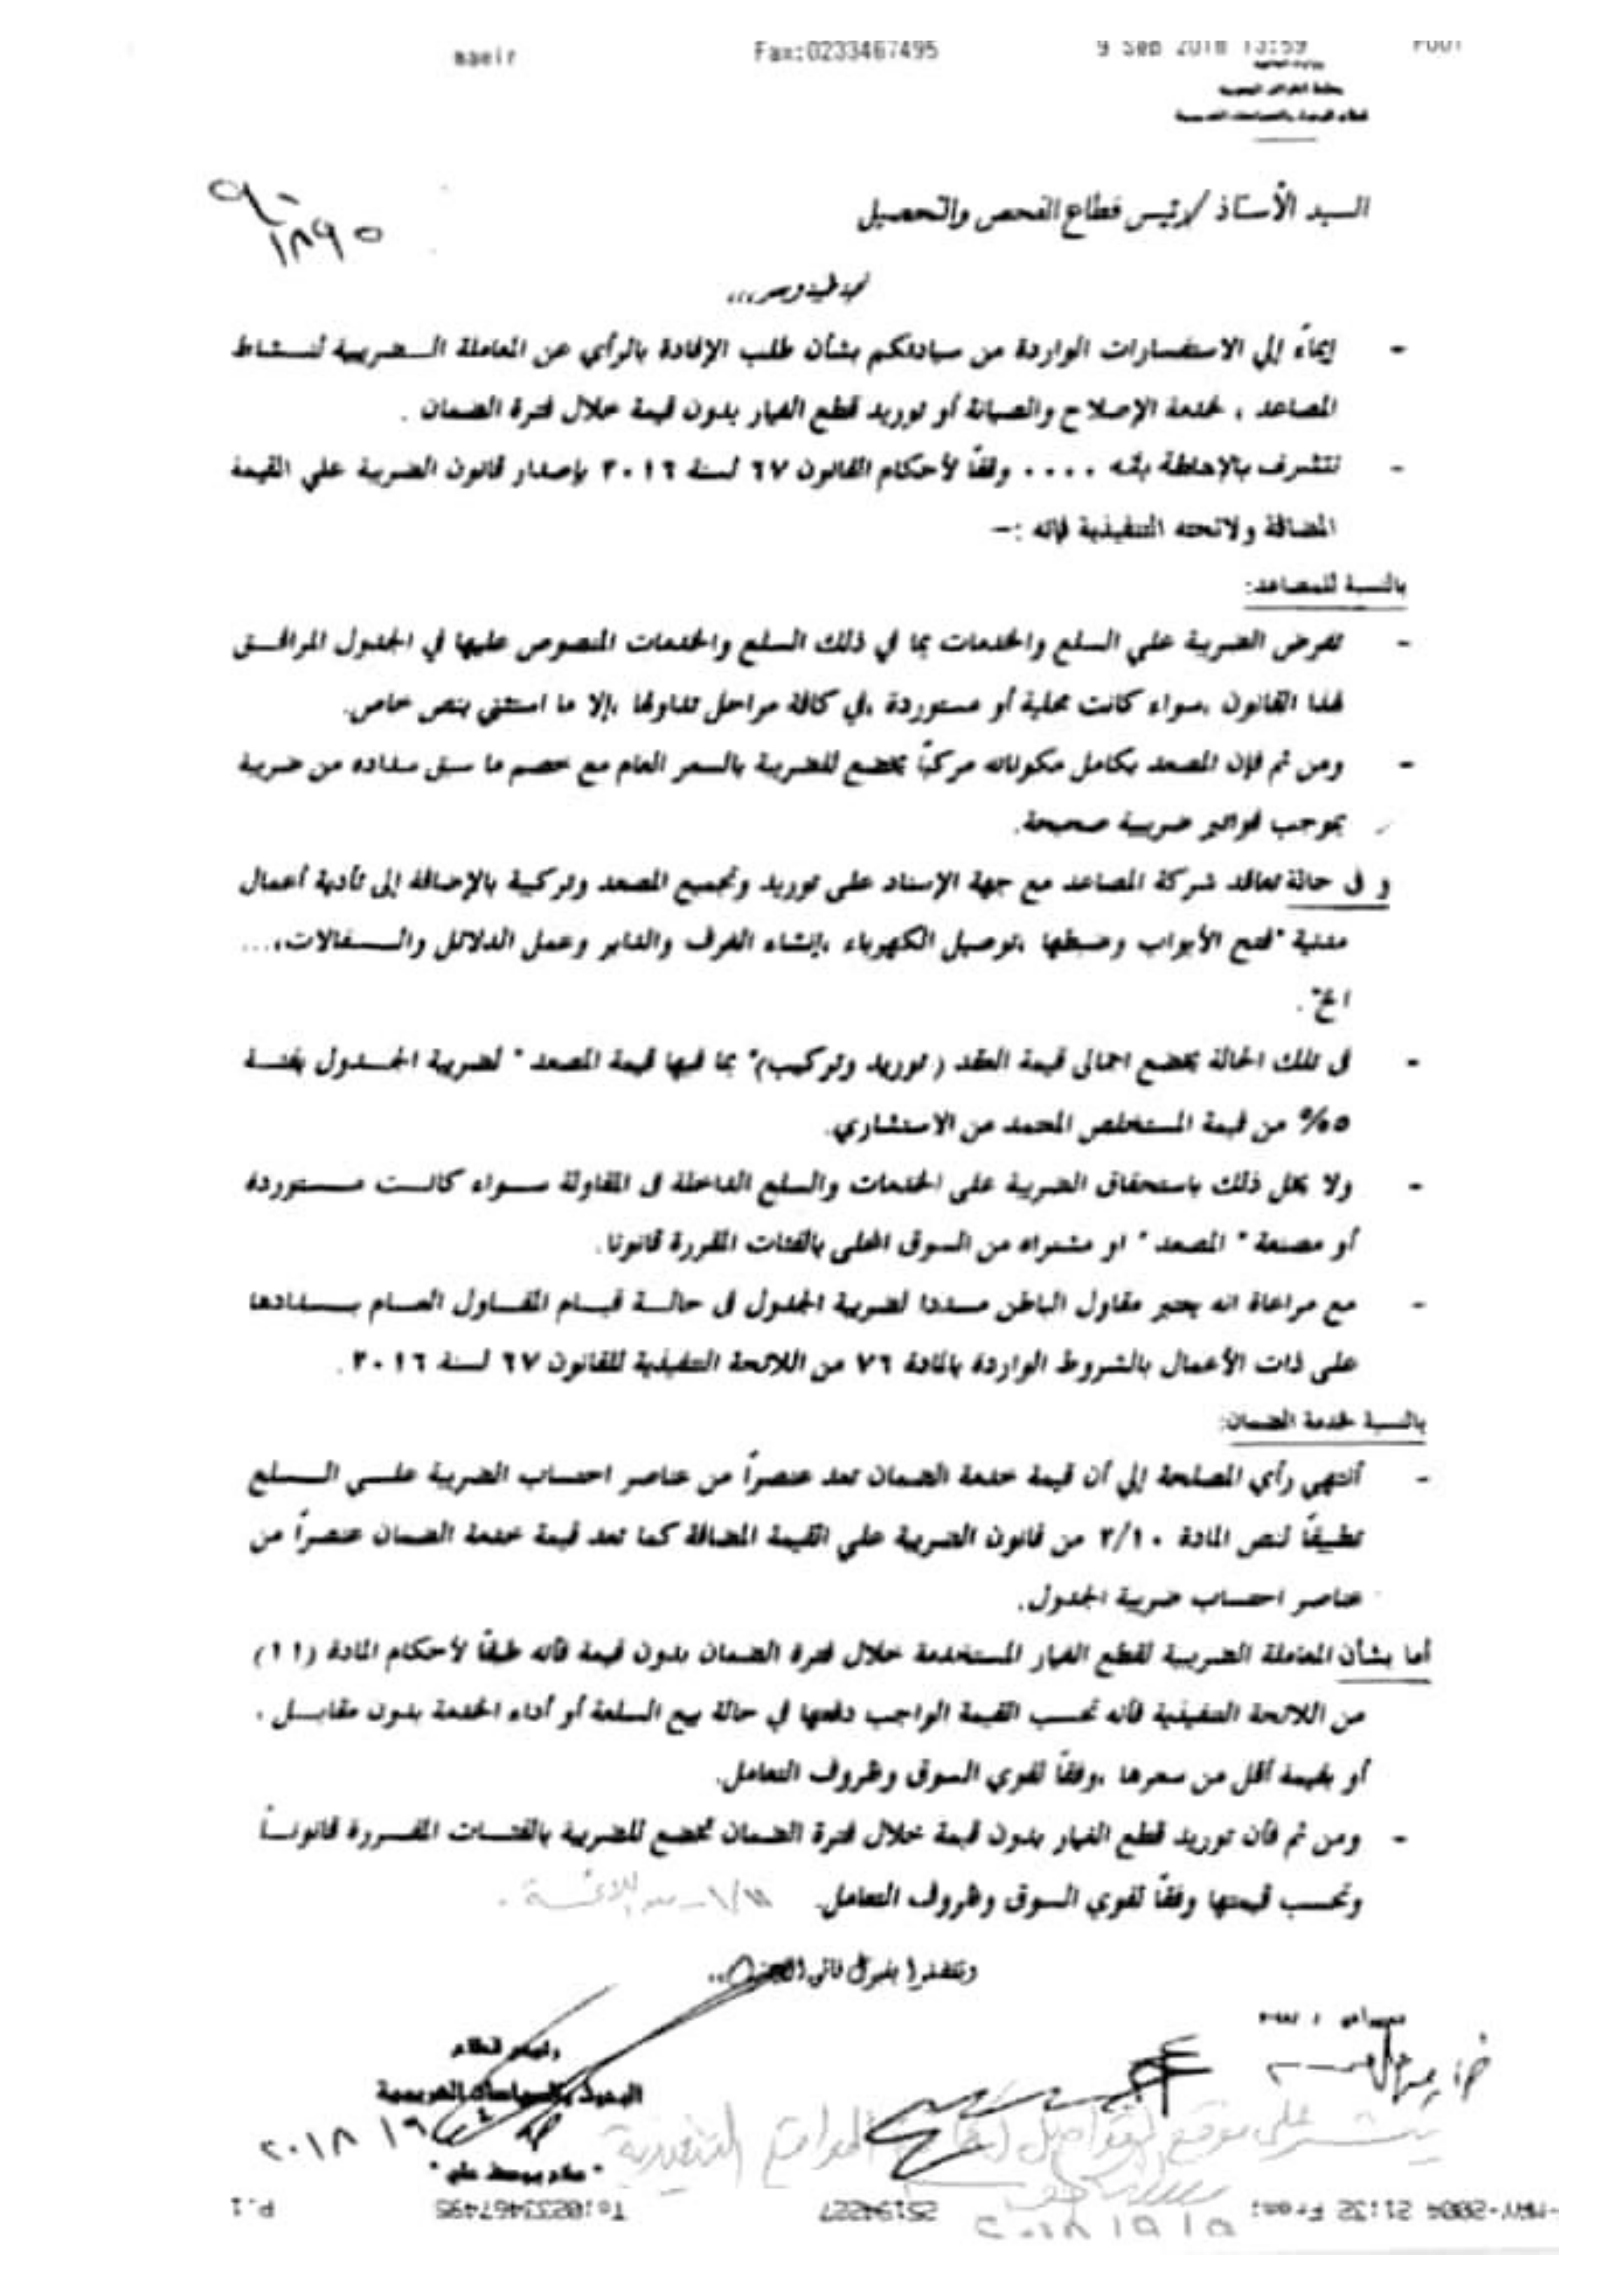 Fax:0233467495
9 Sep 2018 13:59
P001
١٨٩٥
السيد الأستاذ / رئيس قطاع الفحص والتحصيل
- إيماءً إلي الاستفسارات الواردة من سيادتكم بشأن طلب الإفادة بالرأي عن المعاملة الضريبية لنشاط
المصاعد ، لخدمة الإصلاح والصيانة أو توريد قطع الغيار بدون قيمة خلال فترة الضمان .
- نتشرف بالإحاطة بأنه .... وفقاً لأحكام القانون ٦٧ لسنة ٢٠١٦ بإصدار قانون الضريبة علي القيمة
المضافة ولائحته التنفيذية فإنه :-
بالنسبة للمصاعد:
- تفرض الضريبة علي السلع والخدمات بما في ذلك السلع والخدمات المنصوص عليها في الجدول المرافق
لهذا القانون ،سواء كانت محلية أو مستوردة ،في كافة مراحل تداولها ،إلا ما استثني بنص خاص.
- ومن ثم فإن المصعد بكامل مكوناته مركباً يخضع للضريبة بالسعر العام مع خصم ما سبق سداده من ضريبة
بموجب فواتير ضريبية صحيحة.
و فى حالة تعاقد شركة المصاعد مع جهة الإسناد على توريد وتجميع المصعد وتركيبة بالإضافة إلى تأدية أعمال
مدنية "فتح الأبواب وضبطها ،توصيل الكهرباء ،إنشاء الغرف والتنابر وعمل الدلائل والسقالات،...
الخ".
- فى تلك الحالة يخضع اجمالى قيمة العقد (توريد وتركيب)" بما فيها قيمة المصعد " لضريبة الجدول بفئة
٥% من قيمة المستخلص المعتمد من الاستشاري.
- ولا يخل ذلك باستحقاق الضريبة على الخدمات والسلع الداخلة فى المقاولة سواء كانت مستوردة
أو مصنعة " المصعد " او مشتراه من السوق المحلى بالفئات المقررة قانونا.
- مع مراعاة انه يعتبر مقاول الباطن مسددا لضريبة الجدول فى حالة قيام المقاول العام بسدادها
على ذات الأعمال بالشروط الواردة بالمادة ٧٦ من اللائحة التنفيذية للقانون ٦٧ لسنة ٢٠١٦ .
بالنسبة لخدمة الضمان:
- أنتهي رأي المصلحة إلي أن قيمة خدمة الضمان تعد عنصراً من عناصر احتساب الضريبة علي السلع
تطبيقاً لنص المادة ٢/١٠ من قانون الضريبة علي القيمة المضافة كما تعد قيمة خدمة الضمان عنصراً من
عناصر احتساب ضريبة الجدول.
أما بشأن المعاملة الضريبية لقطع الغيار المستخدمة خلال فترة الضمان بدون قيمة فأنه طبقاً لأحكام المادة (١١)
من اللائحة التنفيذية فأنه تحسب القيمة الواجب دفعها في حالة بيع السلعة أو أداء الخدمة بدون مقابل ،
أو بقيمة أقل من سعرها ،وفقاً لقوي السوق وظروف التعامل.
- ومن ثم فأن توريد قطع الغيار بدون قيمة خلال فترة الضمان تخضع للضريبة بالفئات المقررة قانوناً
وتحسب قيمتها وفقاً لقوي السوق وظروف التعامل.
وتفضلوا بقبول فائق
رئيس قطاع
البحوث والسياسات الضريبية
٢٠١٨/٩/
To:0233467495
25194227
P.1